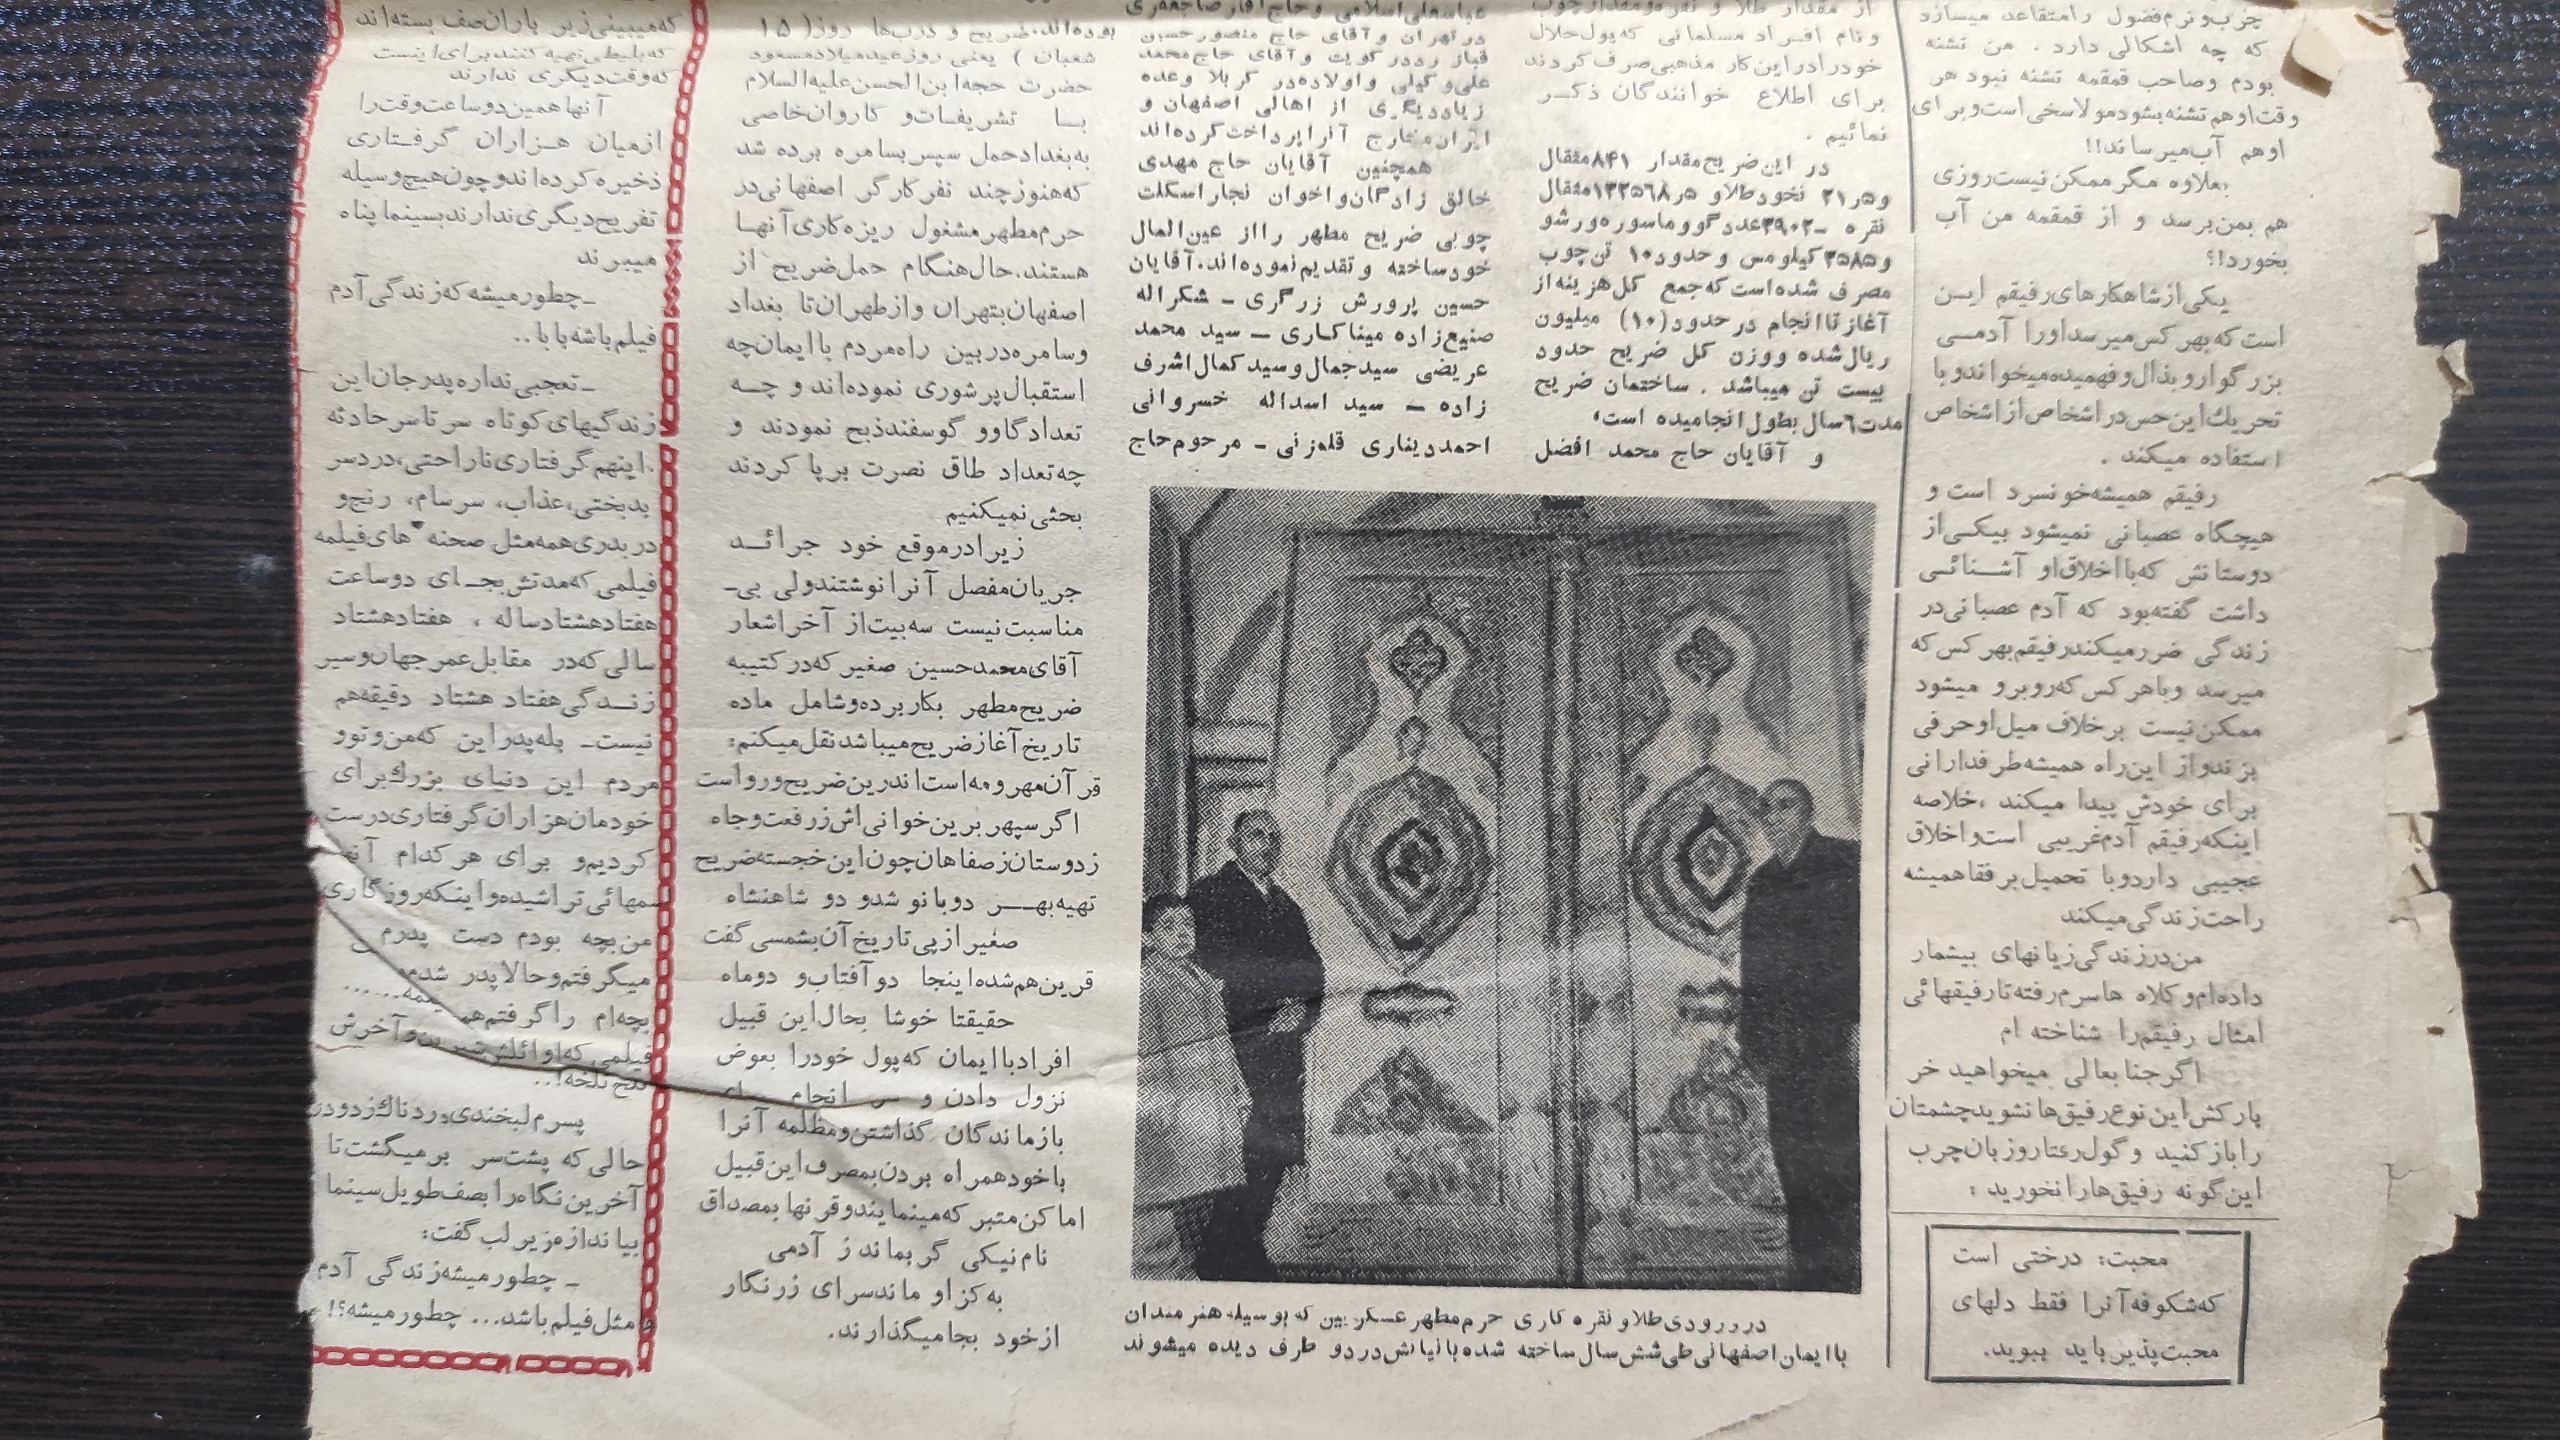 چرب و نرم فضول را متقاعد میسازد
که چه اشکالی دارد . من تشنه
بودم و صاحب قمقمه تشنه نبود هر
وقت او هم تشنه بشود مولا سخی است و برای
او هم آب میرساند!!
بعلاوه مگر ممکن نیست روزی
هم بمن برسد و از قمقمه من آب
بخورد!؟
یکی از شاهکارهای رفیقم ایـن
است که بهر کس میرسد او را آدمـی
بزرگوار و بذال و فهمیده میخواند و با
تحریك این حس در اشخاص از اشخاص
استفاده میکند .
رفیقم همیشه خونسرد است و
هیچگاه عصبانی نمیشود بیکی از
دوستانش که با اخلاق او آشـنائـی
داشت گفته بود که آدم عصبانی در
زندگی ضرر میکند رفیقم بهر کس که
میرسد و با هر کس که روبرو میشود
ممکن نیست برخلاف میل او حرفی
بزند و از این راه همیشه طرفدارانی
برای خودش پیدا میکند ، خلاصه
اینکه رفیقم آدم غریبی است و اخلاق
عجیبی دارد و با تحمیل بر رفقا همیشه
راحت زندگی میکند
من در زندگی زیانهای بیشمار
داده ام و کلاه ها سرم رفته تا رفیقهائی
امثال رفیقم را شناخته ام
اگر جنابعالی میخواهید خر
بارکش این نوع رفیق ها نشوید چشمتان
را باز کنید و گول رفتار و زبان چرب
این گونه رفیق ها را نخورید :
محبت: درختی است
که شکوفه آنرا فقط دلهای
محبت پذیر باید ببوید.
از مقدار طلا و نقره و مقدار چوب
و نام افـراد مسلمانی که پول حلال
خود را در این کار مذهبی صرف کردند
برای اطلاع خوانندگان ذکـر
نمائیم .
در این ضریح مقدار ۸۴۱ مثقال
و ۵ر۲۱ نخود طلا و ۵ر۱۳۲۵۶۸ مثقال
نقره ـ ۳۹۰۲ عدد گو و ماسوره ورشو
و ۳۵۸۵ کیلو مس و حدود ۱۰ تن چوب
مصرف شده است که جمع کل هزینه از
آغاز تا انجام در حدود (۱۰) میلیون
ریال شده و وزن کل ضریح حدود
بیست تن میباشد . ساختمان ضریح
مدت ۶ سال بطول انجامیده است.
و آقایان حاج محمد افضل
عباسعلی اسلامی و حاج آقا رضا جعفری
در تهران و آقای حاج منصور حسین
قبازرد در کویت و آقای حاج محمد
علی وکیلی و اولاده در کربلا و عده
زیاد دیگری از اهالی اصفهان و
ایران و خارج آنرا پرداخت کرده اند
همچنین آقایان حاج مهدی
خالق زادگان و اخوان نجار اسکلت
چوبی ضریح مطهر را از عین المال
خود ساخته و تقدیم نموده اند. آقایان
حسین پرورش زرگری ـ شکراله
صنیع زاده میناکـاری ـ سید محمد
عریضی سید جمال و سید کمال اشرف
زاده ـ سید اسداله خسروانی
احمد دیناری قلمزنی ـ مرحوم حاج
در ورودی طلا و نقره کاری حرم مطهر عسکریین که بوسیله هنرمندان
با ایمان اصفهانی طی شش سال ساخته شده بانیانش در دو طرف دیده میشوند
بوده اند. ضریح و درب ها روز (۱۵
شعبان ) یعنی روز عید میلاد مسعود
حضرت حجه ابن الحسن علیه السلام
بـا تشریفـات و کاروان خاصی
به بغداد حمل سپس بسامره برده شد
که هنوز چند نفر کارگر اصفهانی در
حرم مطهر مشغول ریزه کاری آنهـا
هستند. حال هنگام حمل ضریح از
اصفهان بتهران و از طهران تا بغداد
و سامره در بین راه مردم با ایمان چه
استقبال پرشوری نموده اند و چـه
تعداد گاو و گوسفند ذبح نمودند و
چه تعداد طاق نصرت برپا کردند
بحثی نمیکنیم
زیرا در موقع خود جرائـد
جریان مفصل آنرا نوشتند ولی بی‌ـ
مناسبت نیست سه بیت از آخر اشعار
آقای محمد حسین صغیر که در کتیبه
ضریح مطهر بکار برده و شامل ماده
تاریخ آغاز ضریح میباشد نقل میکنم:
قرآن مهر و مه است اندرین ضریح و رواست
اگر سپهر برین خوانی اش ز رفعت و جاه
ز دوستان ز صفاهان چون این خجسته ضریح
تهیه بهـر دو بانو شد و دو شاهنشاه
صغیر از پی تاریخ آن بشمسی گفت
قرین هم شده اینجا دو آفتاب و دو ماه
حقیقتا خوشا بحال این قبیل
افراد با ایمان که پول خود را بعوض
نزول دادن و انجام
بازماندگان گذاشتن و مظلمه آنرا
با خود همراه بردن بمصرف این قبیل
اماکن متبرکه مینمایند و قرنها بمصداق
نام نیکی گر بماند ز آدمی
به کز او ماند سرای زرنگار
از خود بجا میگذارند.
که میبینی زیر باران صف بسته اند
که بلیطی تهیه کنند برای اینست
که وقت دیگری ندارند
آنها همین دو ساعت وقت را
از میان هـزاران گرفـتاری
ذخیره کرده اند و چون هیچ وسیله
تفریح دیگری ندارند بسینما پناه
میبرند
ـ چطور میشه که زندگی آدم
فیلم باشه بابا ..
ـ تعجبی نداره پدر جان این
زندگیهای کوتاه سر تا سر حادثه
. اینهم گرفتاری ناراحتی، دردسر
بدبختی، عذاب، سرسام، رنج و
دربدری همه مثل صحنه های فیلمه
فیلمی که مدتش بجـای دو ساعت
هفتاد هشتاد ساله ، هفتاد هشتاد
سالی که در مقابل عمر جهان و سیر
زنـدگی هفتاد هشتاد دقیقه هم
نیست ـ بله پدر این که من و تو و
مردم این دنیای بزرك برای
خودمان هزاران گرفتاری درست
کردیم و برای هر کدام
تراشیده و اینکه روزگاری
من بچه بودم دست پدرم
میگرفتم و حالا پدر شدم
بچه ام را گرفتم
فیلمی که اوائلش و آخرش
تلخه!..
پسرم لبخندی دردناك زد و در
حالی که پشت سر بر میگشت تا
آخرین نگاه را بصف طویل سینما
بیاندازه زیر لب گفت:
ـ چطور میشه زندگی آدم
مثل فیلم باشد... چطور میشه؟!